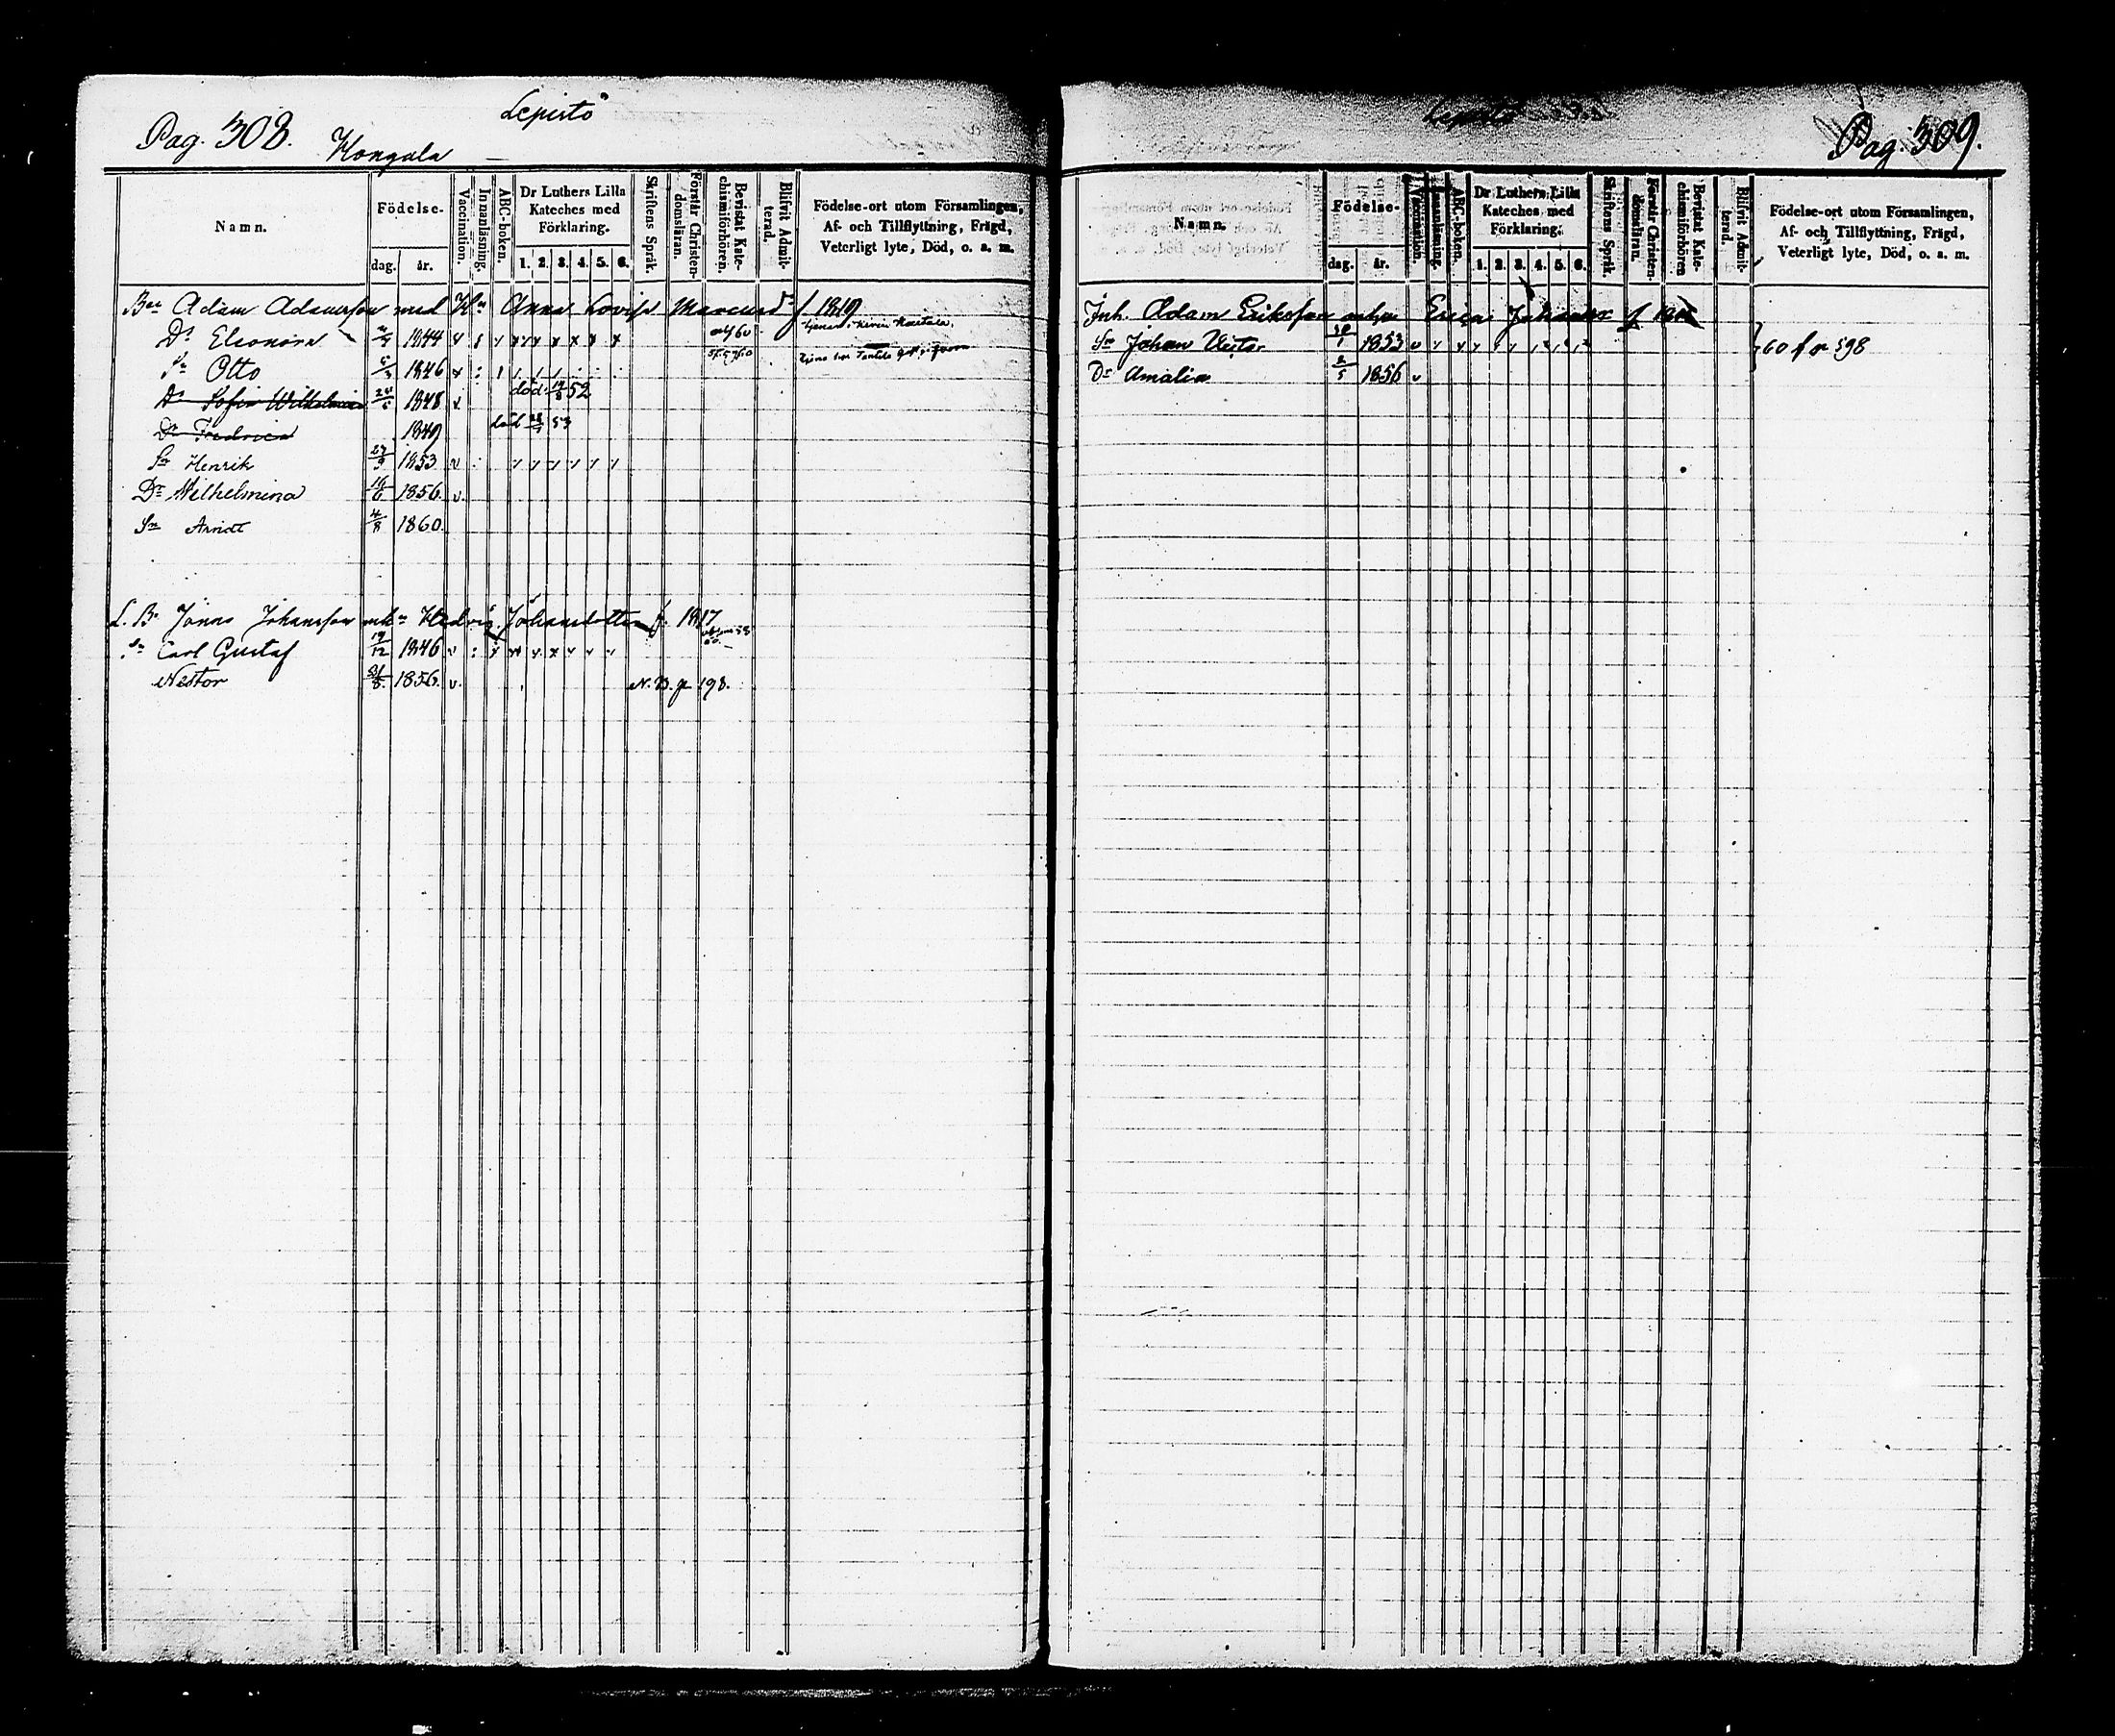 Pag. 308.
Lepistö
Kongala
Namn.
Födelse-
dag. år.
Vaccination.
Innanläsning.
ABC-boken.
Dr Luthers Lilla
Kateches med
Förklaring.
1. 2. 3. 4. 5. 6.
Skriftens Språk.
Förstår Christen-
domsläran.
Bevistat Kate-
chismiförhören.
Blifvit Admit-
terad.
Födelse-ort utom Församlingen,
Af- och Tillflyttning, Frägd,
Veterligt lyte, Död, o. a. m.
Adam Adamsson med Hu Anna Lovisa Marcusdr f 1819
Dr Eleonora 1844
Sn Otto 1846
Dr Sofia Wilhelmina 1848 död 52
Dr Fredrica 1849 död 53
Sn Henrik 27/9 1853
Dr Wilhelmina 16/6 1856
Sn Arvidt 4/8 1860.
L. B. Jonas Johansson Hedvig Johansdotter f. 1817
Sn Carl Gustaf 19/12 1846
Nestor 31/8 1856. N. B. p 198.
Pag. 309.
Lepistö
Namn.
Födelse-
dag. år.
Vaccination.
Innanläsning.
ABC-boken.
Dr Luthers Lilla
Kateches med
Förklaring.
1. 2. 3. 4. 5. 6.
Skriftens Språk.
Förstår Christen-
domsläran.
Bevistat Kate-
chismiförhören
Blifvit Admit-
terad.
Födelse-ort utom Församlingen,
Af- och Tillflyttning, Frägd,
Veterligt lyte, Död, o. a. m.
Inh. Adam Eriksson Erica
Sn Johan Nestor 1853 60 f p 598
Dr Amalia 2/5 1856